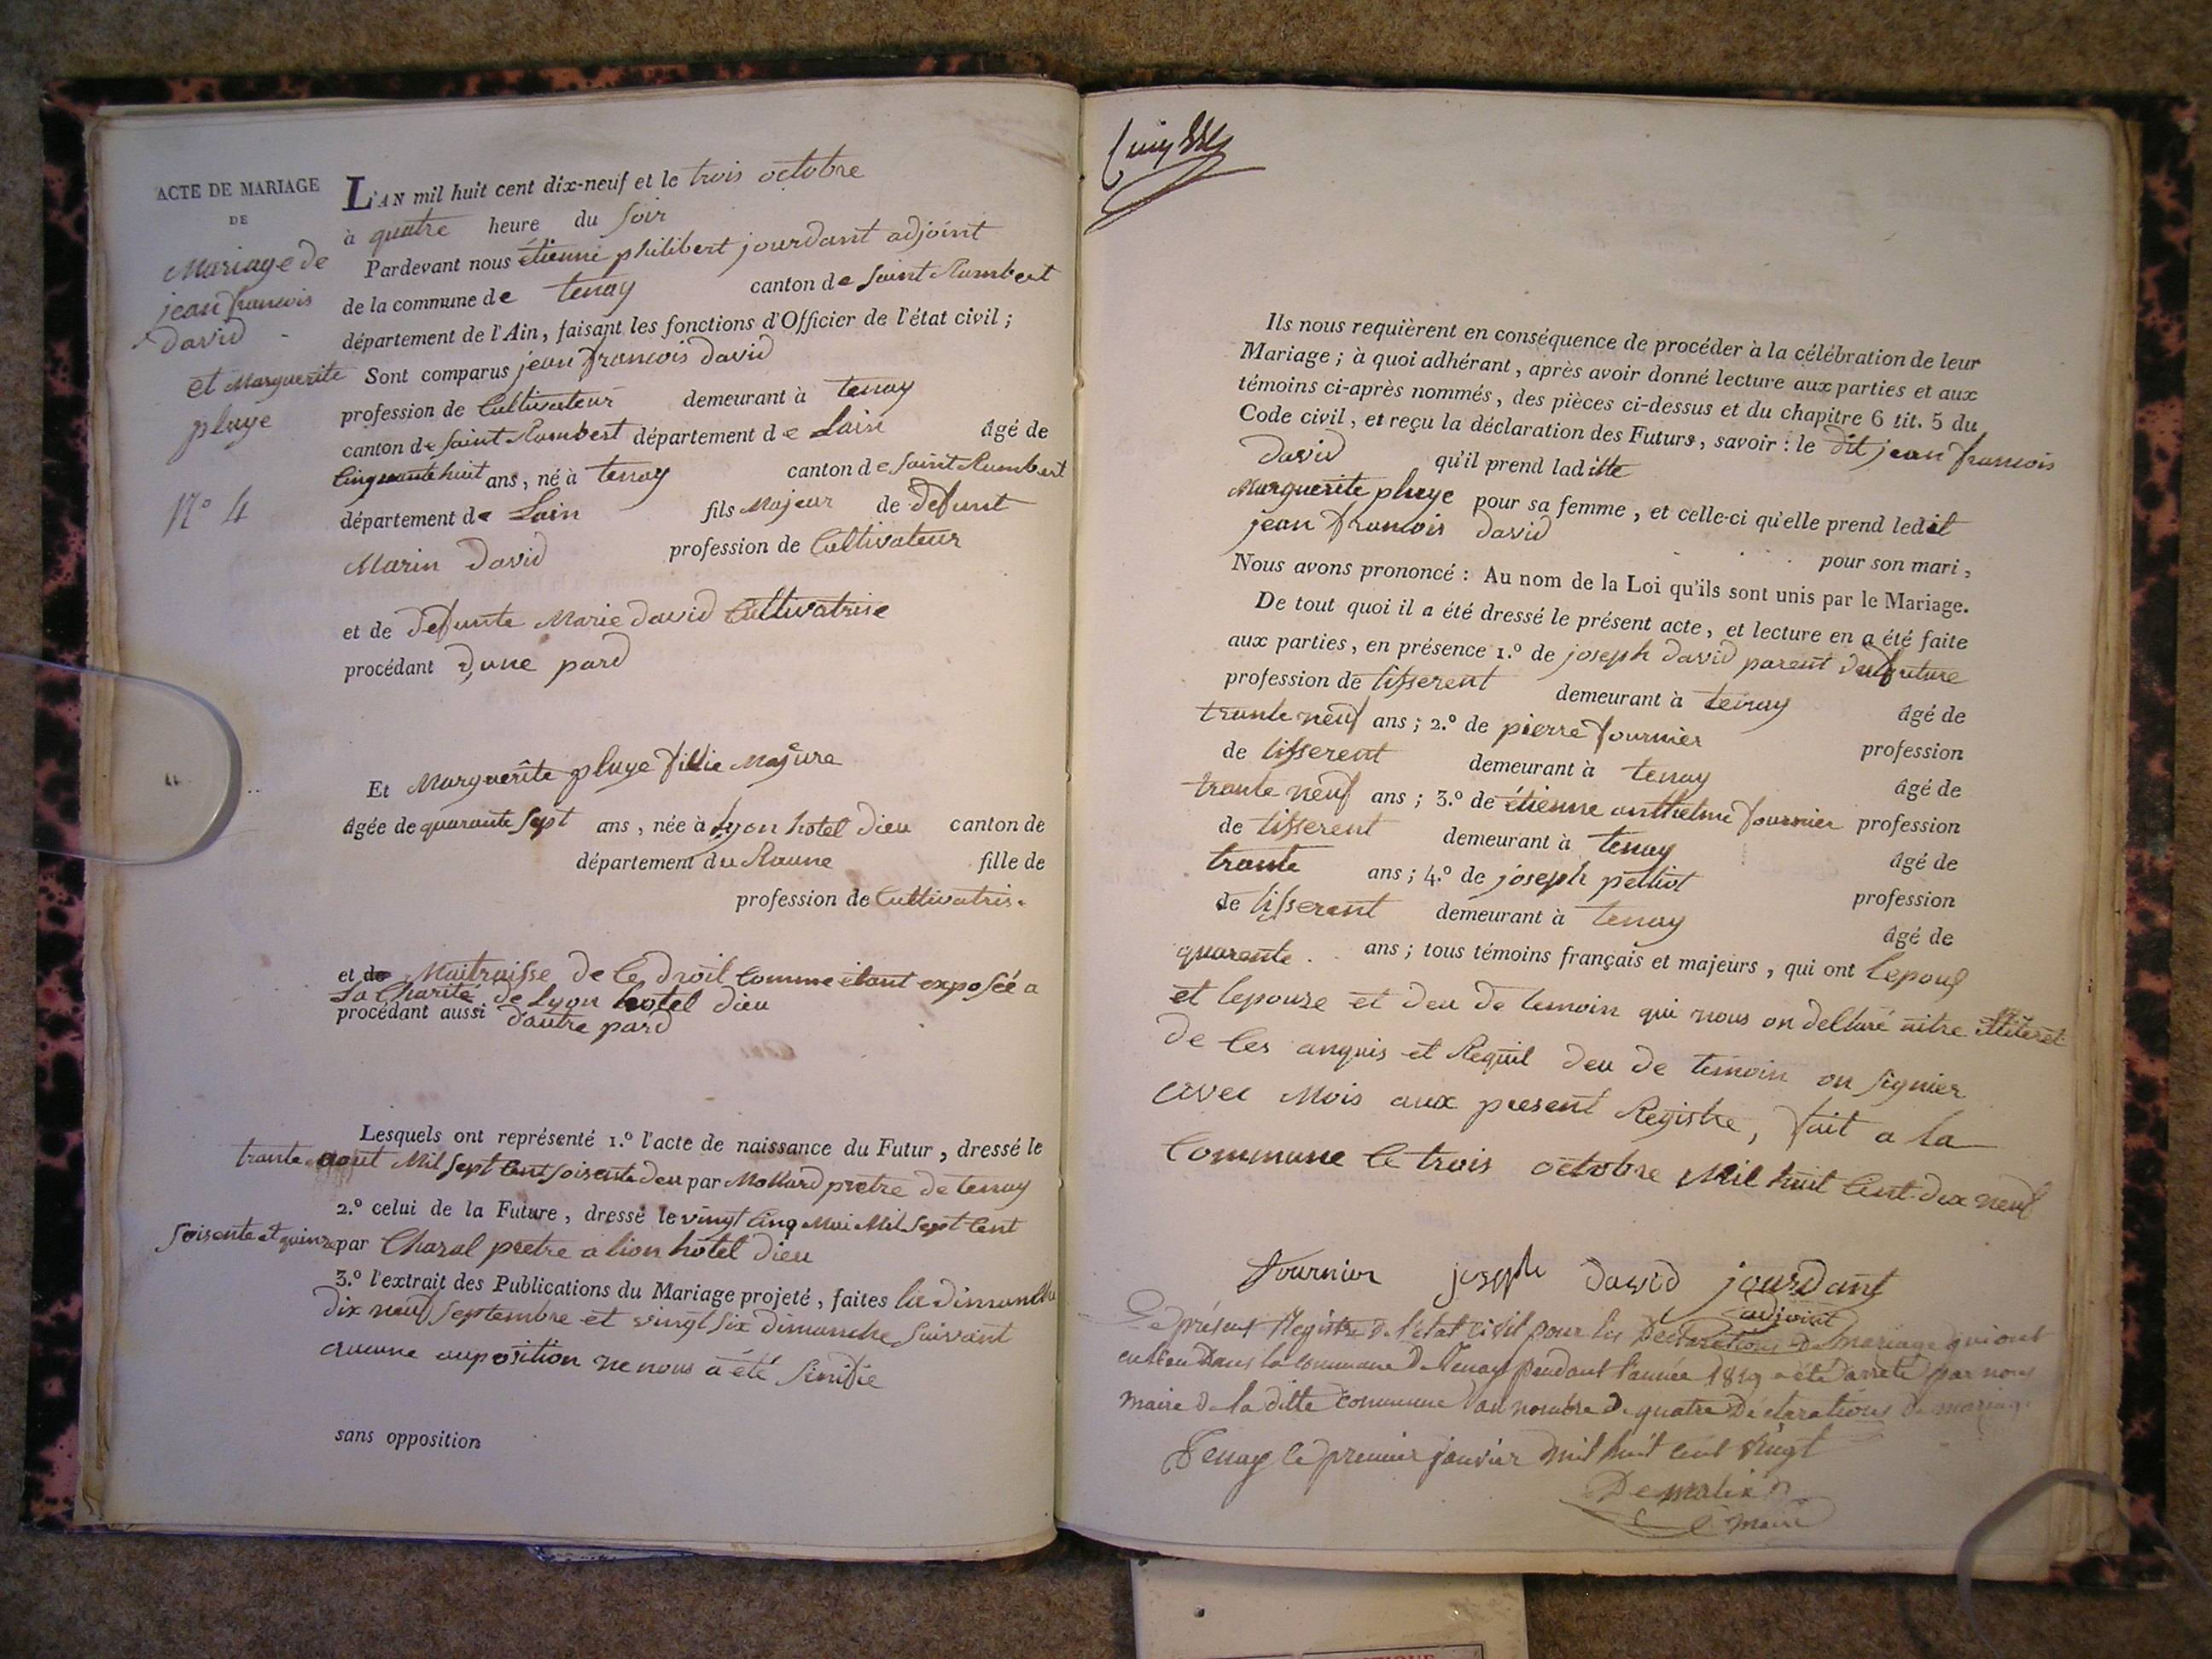 ACTE DE MARIAGE
DE
Mariage de
jean francois
david
et Marguerite
pluye
N.° 4
L'AN mil huit cent dix-neuf et le trois octobre
à quatre heure du soir
Pardevant nous étienne philibert jourdant adjoint
de la commune de tenay canton de saint Rambert
département de l'Ain, faisant les fonctions d'Officier de l'état civil ;
Sont comparus jean francois david
profession de Cultivateur demeurant à tenay
canton de saint Rambert département de Lain âgé de
Cinquante huit ans, né à tenay canton de saint Rambert
département de Lain fils Majeur de defunt
Marin david profession de Cultivateur
et de defunte Marie david Cultivatrise
procédant dune pard
Et Marguerite pluye fillie Majeure
âgée de quarante sept ans, née à Lyon hotel dieu canton de
département du Raune fille de
profession de Cultivatris.
et de Maitraisse de Ce droit Comme étant exposéé a
La Charité de Lyon hotel dieu
procédant aussi d'autre pard
Lesquels ont représenté 1.° l'acte de naissance du Futur, dressé le
trante aout Mil sept Cent soisente deu par Mollard pretre de tenay
2.° celui de la Future, dressé le vingt Cinq Mai Mil sept Cent
soisente et quinze par Charal pretre a lion hôtel dieu
3.° l'extrait des Publications du Mariage projeté, faites Le dimanche
dix neuf septembre et vingt six dimanche suivant
aucune auposition ne nous a été sinifie
sans opposition
Ils nous requièrent en conséquence de procéder à la célébration de leur
Mariage ; à quoi adhérant, après avoir donné lecture aux parties et aux
témoins ci-après nommés, des pièces ci-dessus et du chapitre 6 tit. 5 du
Code civil, et reçu la déclaration des Futurs, savoir : le dit jean francois
david qu'il prend laditte
Marguerite pluye pour sa femme, et celle-ci qu'elle prend ledit
jean francois david pour son mari,
Nous avons prononcé : Au nom de la Loi qu'ils sont unis par le Mariage.
De tout quoi il a été dressé le présent acte, et lecture en a été faite
aux parties, en présence 1.° de joseph david parent du future
profession de tisserent demeurant à tenay âgé de
trante neuf ans ; 2.° de pierre fournier profession
de tisserent demeurant à tenay âgé de
trante neuf ans ; 3.° de étienne anthelme fournier profession
de tisserent demeurant à tenay âgé de
trante ans ; 4.° de joseph pelliot profession
de tisserent demeurant à tenay âgé de
quarente ans ; tous témoins français et majeurs, qui ont Lepouf
et lepouze et deu de temoin qui nous on declaré nitre illiteret
de Ces anquis et Requit deu de temoin on signier
avec Mois aux present Registre, fait a la
Commune Ce trois octobre Mil huit Cent dix neuf
fournier joseph david jourdant
adjoint
Le présent Registre de l'état Civil pour les Déclarations de mariage qui ont
eu lieu dans la commune de Tenay pendant l'année 1819 a été arreté par nous
maire de la ditte Commune au nombre de quatre Déclarations de mariage
Tenay le premier janvier mil huit cent vingt
Demalix
Maire